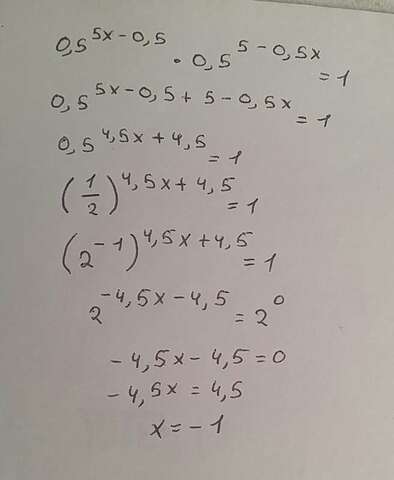 0,5^(5x – 0,5) · 0,5^(5 – 0,5x) = 1
0,5^(5x – 0,5 + 5 – 0,5x) = 1
0,5^(4,5x + 4,5) = 1
(1/2)^(4,5x + 4,5) = 1
(2^(–1))^(4,5x + 4,5) = 1
2^(–4,5x – 4,5) = 2^0
– 4,5x – 4,5 = 0
– 4,5x = 4,5
x = – 1